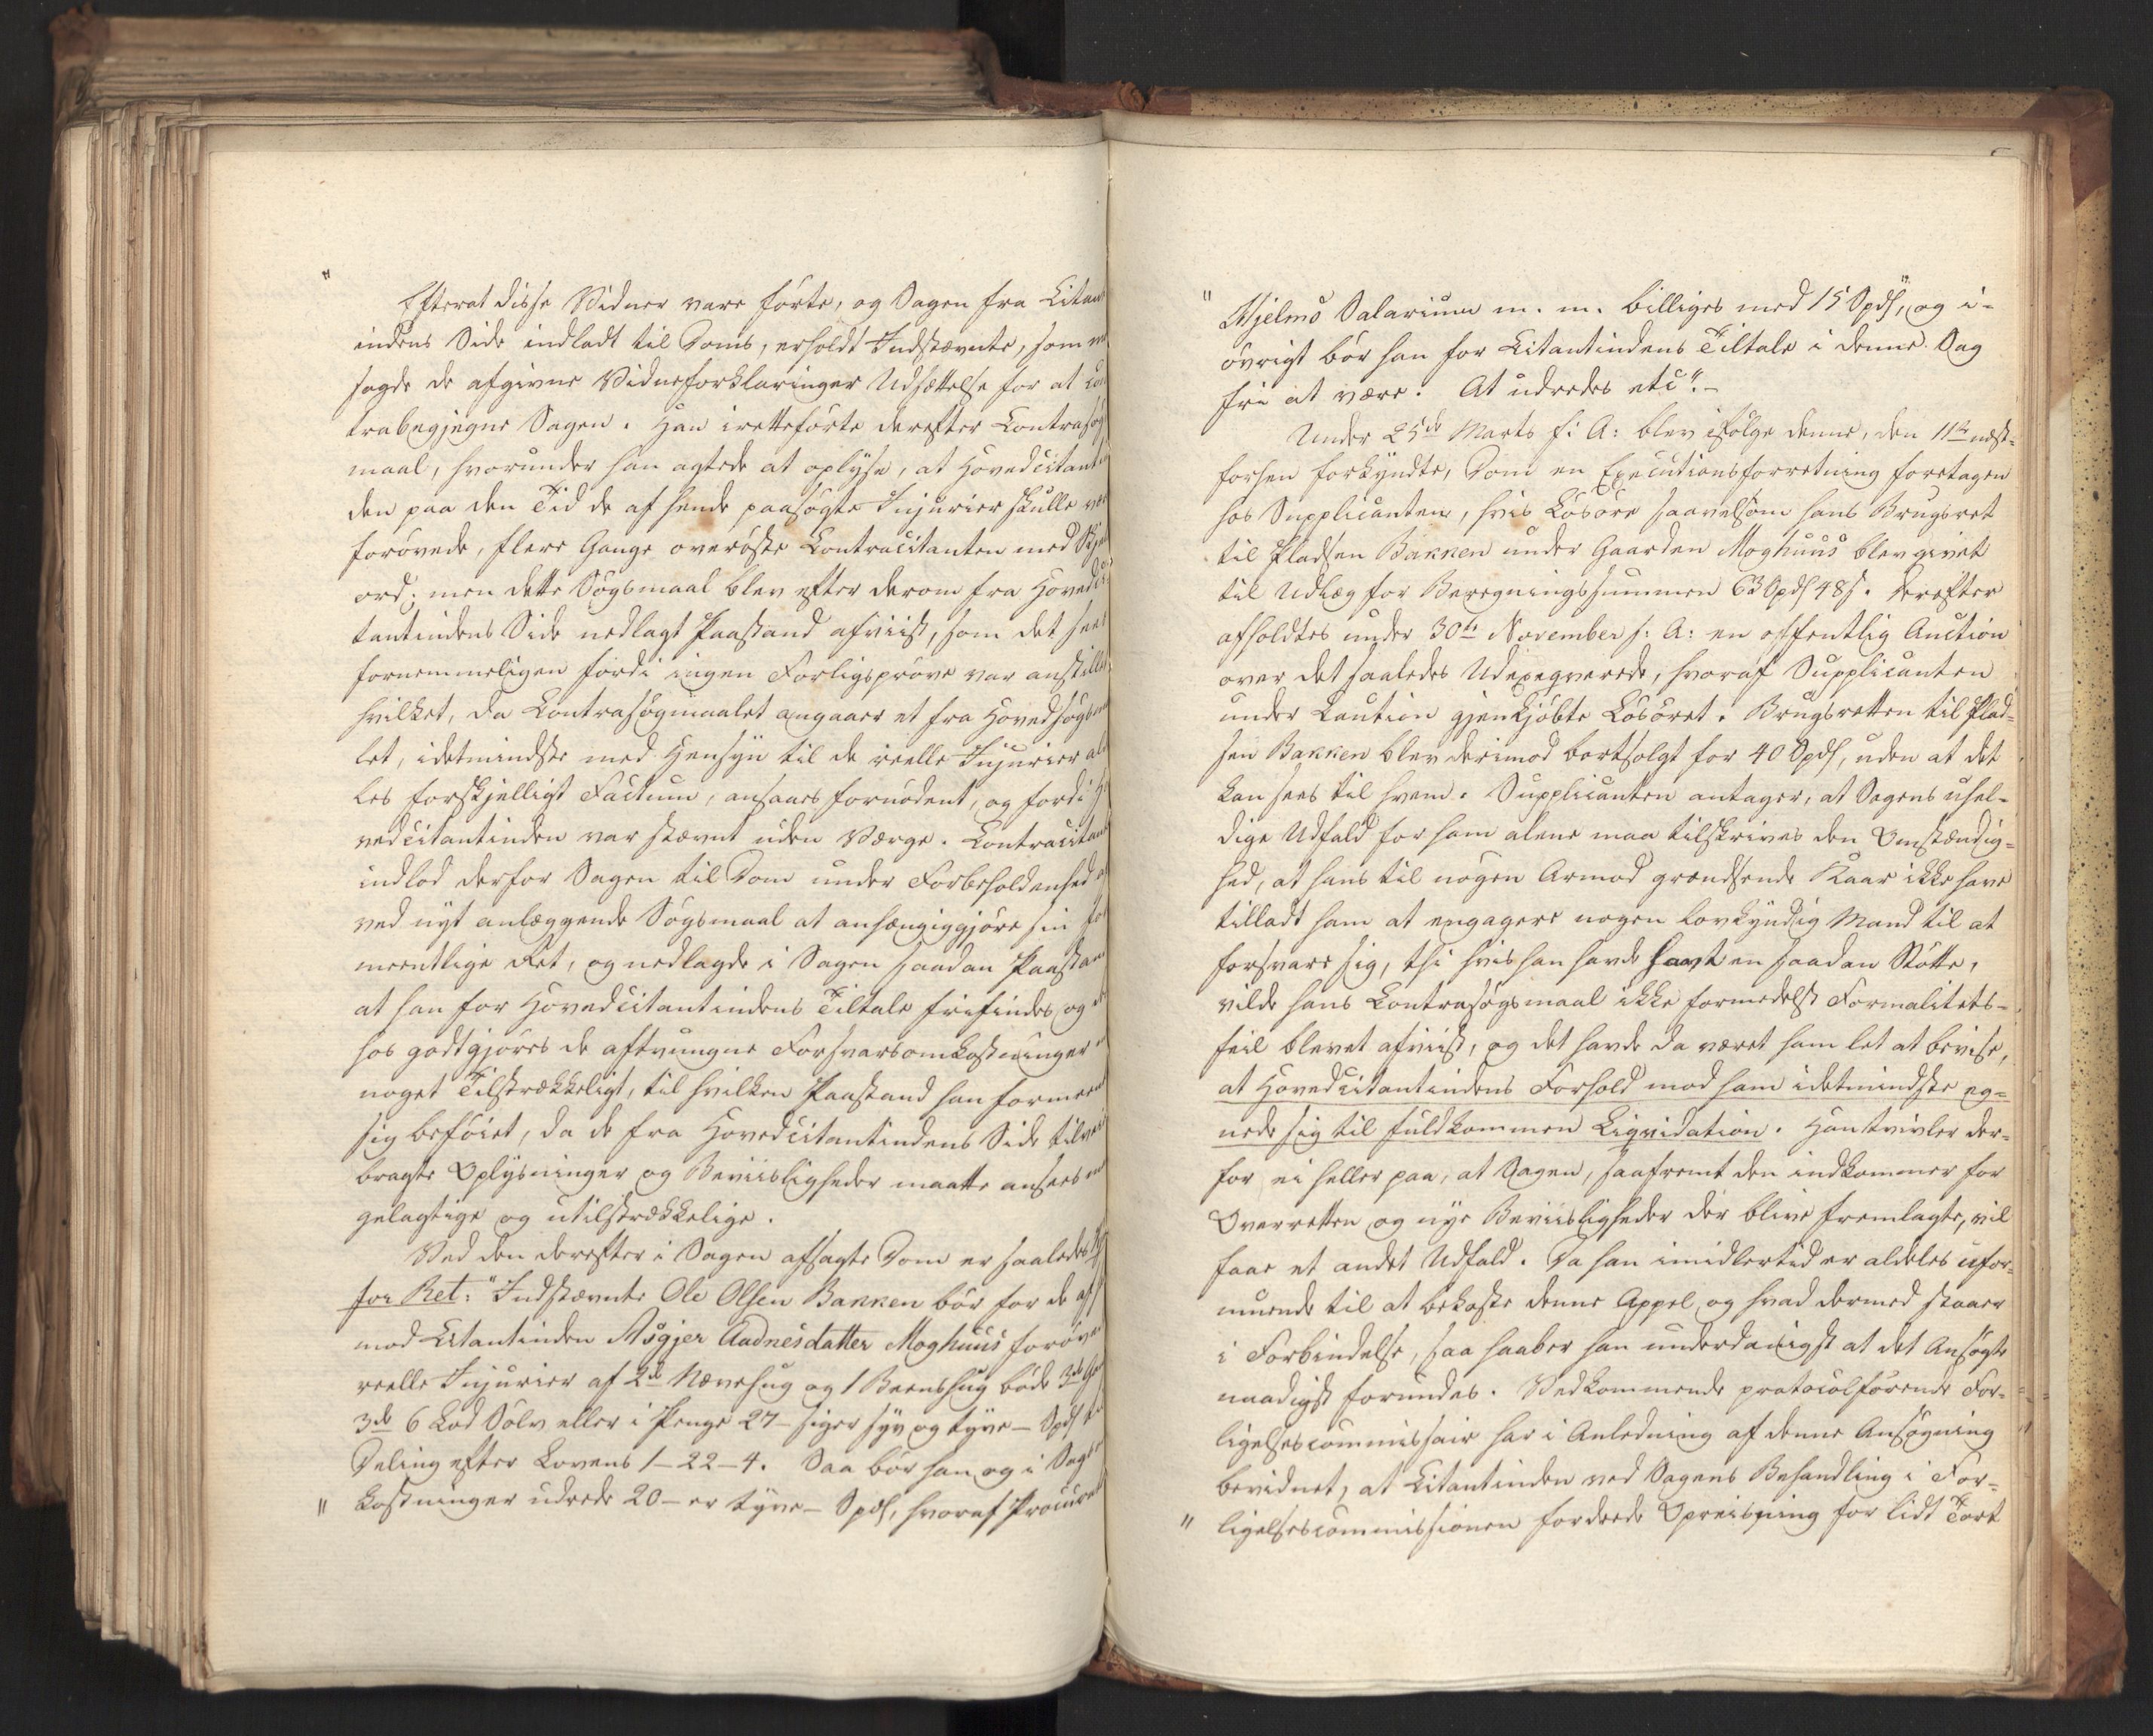 "
Efterat disse Vidner vare førte, og Sagen fra Citan
indens Side indladt til Doms, erholdt Indstævnte, som
sagde de afgivne Vidneforklaringer Udsættelse for at con
trabegjegne Sagen. Han iretteførte derefter Contrasøgs
maal, hvorunder han agtede at oplyse, at Hovedcitantin
den paa den Tid de af hende paasøgte Injurier skulle være
forøvede, flere Gange overøste Contracitanten med Skjelds
ord; men dette Søgsmaal blev efter derom fra Hovedci
tantindens Side nedlagt Paastand afviist, som det sees
fornemmeligen fordi ingen Forligsprøve var anstillet
hvilket, da Contrasøgmaalet angaaer et fra Hovedsøgsmaa
let, idetmindste med Hensyn til de reelle Injurier alde
les forskjelligt Factum, ansaaes fornødent, og fordi Ho
vedcitantinden var stævnt uden Værge. Contracitan
indlod derfor Sagen til Dom under Forbeholdenhed af
ved nyt anlæggende Søgsmaal at anhængiggjøre sin for
meentlige Ret, og nedlagde i Sagen saadan Paastand
at han for Hovedcitantindens Tiltale frifindes og
hos godtgjøres de aftvungne Forsvarsomkostninger
noget Tilstrækkeligt, til hvilken Paastand han formeente
sig beføiet, da de fra Hovedcitantindens Side tilveie
bragte Oplysninger og Beviisligheder maatte ansees
gelagtige og utilstrækkelige.
Ved den derefter i Sagen afsagte Dom er saaledes
for Ret: "Indstævnte Ole Olsen Bakken bør for de af
mod Citantinden Asgjer Aadnesdatter Moghuus forøvede
reelle Injurier af 2de Næveshug og 1 Beenshug bøde 3de
3de 6 Lod Sølv eller i Penge 27 – siger syv og tyve – Spd
Deling efter Lovens 1–22–4. Saa bør han og i Sags
" kostninger udrede 20 – er tyve – Spd, hvoraf Procurat
" Hjelms Salarium m. m. billiges med 15 Spd, og i-
øvrigt bør han for Citantindens Tiltale i denne Sag
fri at være. At udredes etc". –
Under 25de Marts f: A: blev ifølge denne, den 11te næst-
forhen forkyndte, Dom en Executionsforretning foretagen
hos Supplicanten, hvis Løsøre saavelsom hans Brugsret
til Pladsen Bakken under Gaarden Moghuus blev givet
til Udlæg for Beregningssummen 63 Spd 48 s. Derefter
afholdtes under 30te November s: A: en offentlig Auction
over det saaledes Udexeqverede, hvoraf Supplicanten
under Caution gjenkjøbte Løsøret. Brugsretten til Plad-
sen Bakken blev derimod bortsolgt for 40 Spd, uden at det
kan sees til hvem. Supplicanten antager, at Sagens uhel-
dige Udfald for ham alene maa tilskrives den Omstændig-
hed, at hans til nogen Armod grændsende Kaar ikke have
tilladt ham at engagere nogen lovkyndig Mand til at
forsvare sig, thi hvis han havde havt en saadan Støtte,
vilde hans Contrasøgsmaal ikke formedelst Formalitets-
feil blevet afviist, og det havde da været ham let at bevise,
at Hovedcitantindens Forhold mod ham idetmindste eg-
nede sig til fuldkommen Liqvidation. Han tvivler der-
for ei heller paa, at Sagen, saafremt den indkommer for
Overretten og nye Beviisligheder der blive fremlagte, vil
faae et andet Udfald. Da han imidlertid er aldeles ufor-
muende til at bekoste denne Appel og hvad dermed staaer
i Forbindelse, saa haaber han underdanigst at det Ansøgte
naadigst forundes. Vedkommende protocolførende For-
ligelsescommissair har i Anledning af denne Ansøgning
bevidnet, at Citantinden ved Sagens Behandling i For-
" ligelsescommissionen fordrede Opreisning for lidt Tort